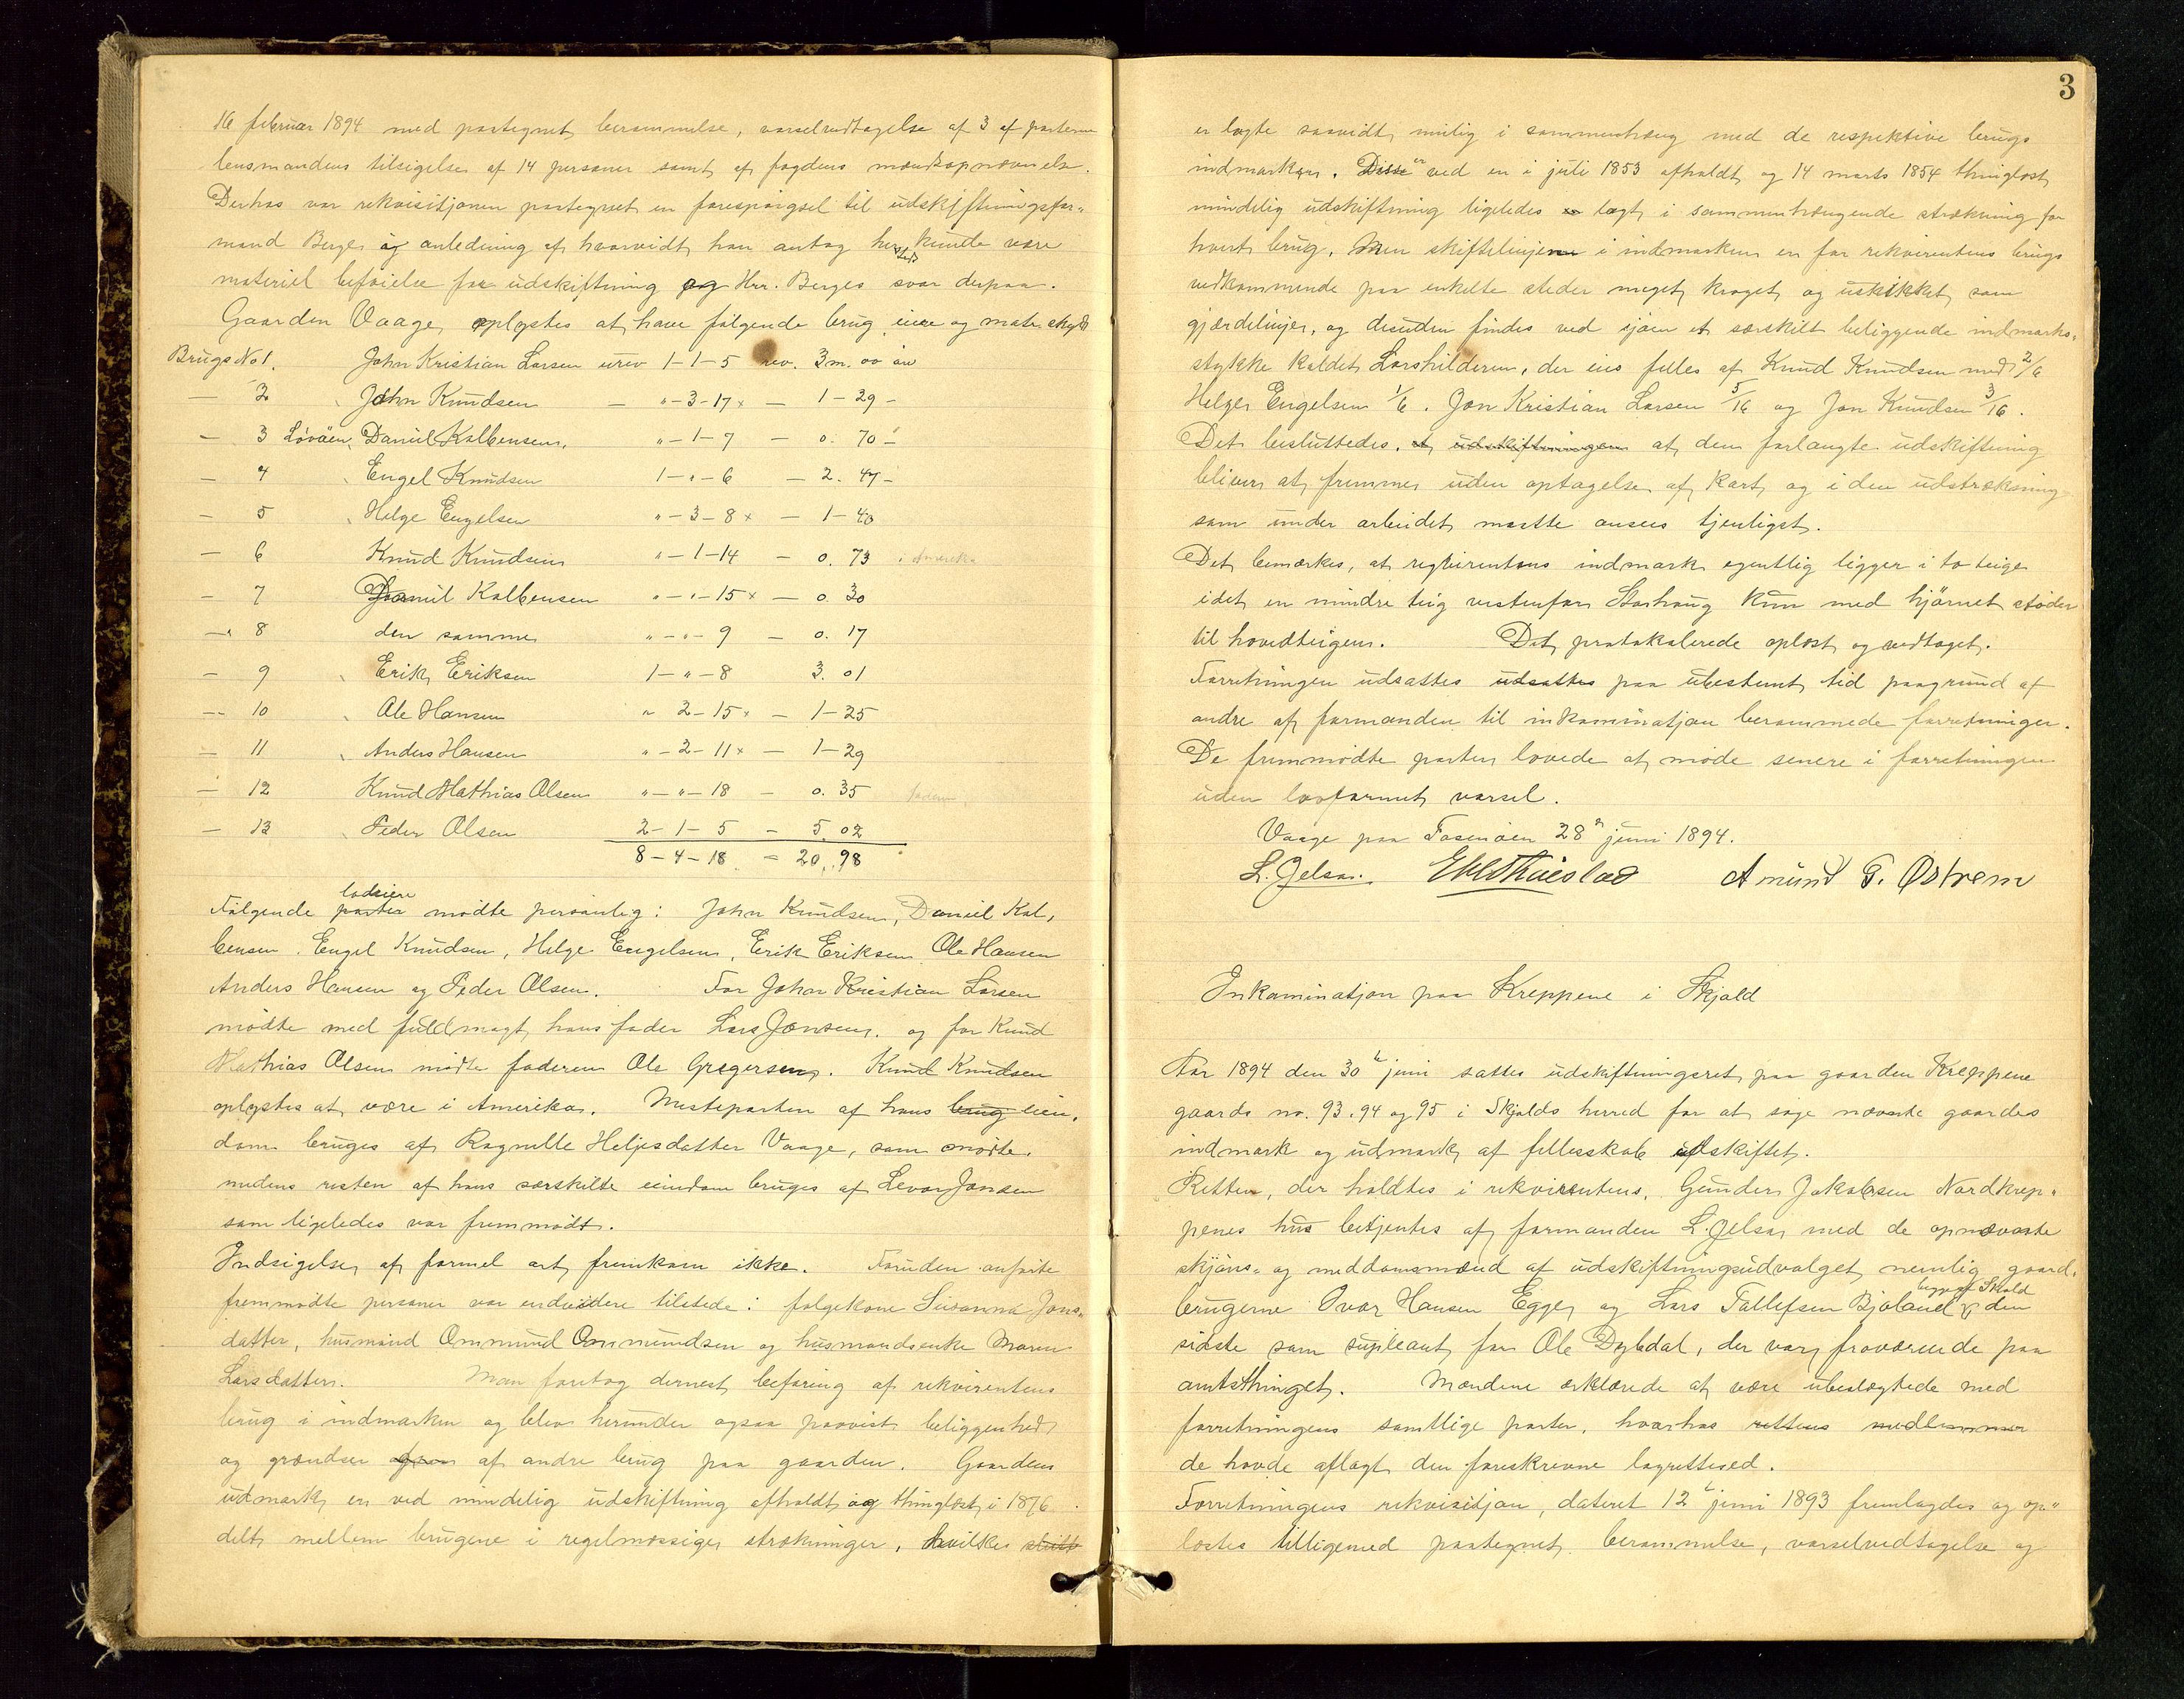 16 februar 1894 med paategnet berammelse, varselvedtagelse af 3 af parterne
lensmandens tilsigelse af 14 personer samt af fogdens mændsopnævnelse.
Derhos var rekvisitjonen paategnet en forespørgsel til udskiftningsfor-
mand Berges i anledning af hvorvidt han antog her kunde være
materiel beføielse for udskiftning og Hrr. Berges svar derpaa.
Gaarden Vaage, oplystes at have følgende brug eiere og matr. skyld
Brugs No 1. John Kristian Larsen urev 1-1-5 rev. 3 m. 00 øre
— 2 John Knudsen — " - 3 - 17 x — 1 - 29 -
— 3 Løvåen, Daniel Kolbensen, " - 1 - 7 — 0. 70 -
— 4 Engel Knudsen 1 - " - 6 — 2. 47 -
— 5 Helge Engelsen " - 3 - 8 x — 1 - 40
— 6 Knud Knudsen " - 1 - 14 — 0. 73 i Amerika
— 7 Daniel Kolbensen " - " - 15 x — 0. 30
— 8 den samme " - " - 9 — 0. 17
— 9 Erik Eriksen 1 - " - 8 3. 01
— 10 Ole Hansen " 2 - 15 x — 1 - 25
— 11 Anders Hansen " - 2 - 11 x — 1 - 29
— 12 Knud Mathias Olsen " - " - 18 — 0. 35 faderen
— 13 Peder Olsen 2 - 1 - 5 — 5. 02
8 - 4 - 18 — 20. 98
lodeiere
Følgende parter mødte personlig: John Knudsen, Daniel Kol,
bensen. Engel Knudsen, Helge Engelsen, Erik Eriksen, Ole Hansen
Anders Hansen og Peder Olsen. For Johan Kristian Larsen
mødte med fuldmagt hans fader Lars Jonsen, og for Knud
Mathias Olsen mødte faderen Ole Gregersen. Knud Knudsen
oplystes at være i Amerika. Mesteparten af hans brug eien,
dom bruges af Ragnille Heljesdatter Vaage, som mødte.
medens resten af hans særskilte eiendom bruges af Levor Jonsen
som ligeledes var fremmødt.
Indsigelse af formel art fremkom ikke. Foruden anførte
fremmødte personer var endvidere tilstede: folgekone Susanna Jons-
datter, husmand Ommund Ommundsen og husmandsenke Maren
Larsdatter. Man foretog dernest befaring af rekvirentens
brug i indmarken og blev herunder ogsaa paavist beliggenhed
og grændser af andre brug paa gaarden. Gaardens
udmark er ved mindelig udskiftning afholdt og thinglæst i 1876
delt mellem brugene i regelmæssige strækninger, hvilke
3
er lagte saavidt mulig i sammenhæng med de respektive brugs
indmarker. Disse er ved en i juli 1853 afholdt og 14 marts 1854 thinglæst
mindelig udskiftning ligeledes lagt i sammenhængende strækning for
hvert brug. Men skiftelinjerne i indmarken er for rekvirentens brugs
vedkommende paa enkelte steder meget kroget og uskikket som
gjærdelinjer, og desuden findes ved sjøen et særskilt beliggende indmarks-
stykke kaldet Larshilderen, der eies fælles af Knud Knudsen med 2/6
Helge Engelsen 1/6. Jon Kristian Larsen 5/16 og Jon Knudsen 3/16.
Det besluttedes, at udskiftningen at den forlangte udskiftning
bliver at fremme uden optagelse af kart og i den udstrækning
som under arbeidet maatte ansees tjenligst.
Det bemærkes, at reqvirentens indmark egentlig ligger i to teige
idet en mindre teig vestenfor Storhaug kun med hjørnet støder
til hovedteigen. Det protokolerede oplæst og vedtaget.
Forretningen udsattes udsattes paa ubestemt tid paagrund af
andre af formanden til inkaminatjon berammede forretninger.
De fremmødte parter lovede at møde senere i forretningen
uden lovformet varsel.
Vaage paa Fosenøen 28 juni 1894.
L. Jelsa. Amund G. Østrem
Inkaminatjon paa Kreppene i Skjold
Aar 1894 den 30te juni sattes udskiftningsret paa gaarden Kreppene
gaards no. 93. 94 og 95 i Skjolds herred for at søge nævnte gaardes
indmark og udmark af fellesskab udskiftet.
Retten, der holdtes i rekvirentens, Gunder Jakobsen Nordkrep-
penes hus betjentes af formanden L. Jelsa, med de opnævnte
skjøns- og meddomsmænd af udskiftningsudvalget nemlig gaard.
brugerne Ovar Hansen Egge, og Lars Tallefsen Bjoland begge af Skold den
sidste som supleant for Ole Dybdal, der var fraværende paa
amtsthinget. Mændene erklærede at være ubeslægtede med
forretningens samtlige parter, hvorhos rettens medlemmer
de havde aflagt den foreskrevne lagretteed.
Forretningens rekvisitjon, dateret 12te juni 1893 fremlagdes og op-
læstes tilligemed paategnet berammelse, varselvedtagelse og